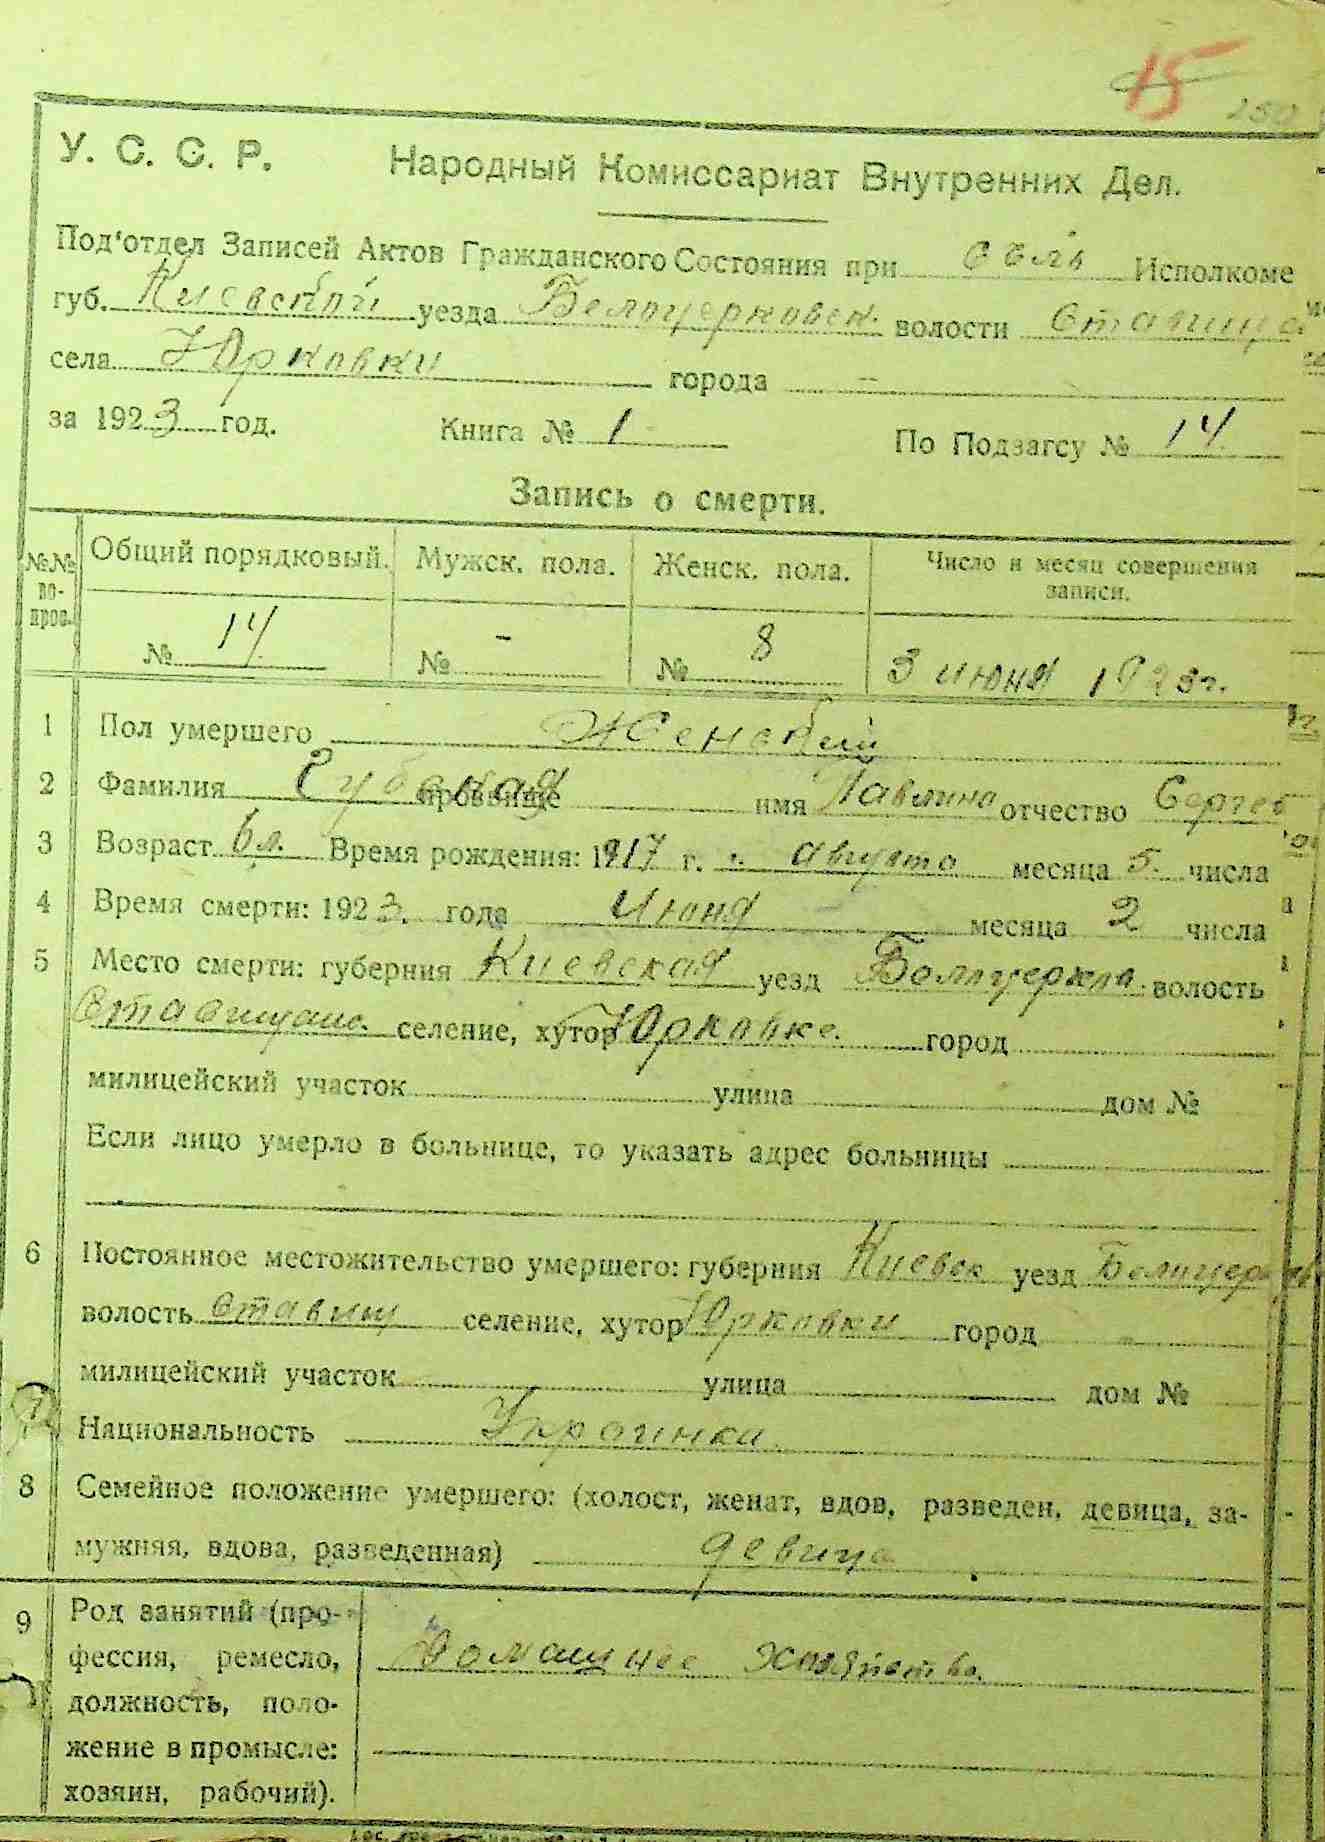 15
150
У. С. С. Р. Народный Комиссариат Внутренних Дел.
Под'отдел Записей Актов Гражданского Состояния при Исполкоме
губ. Киевской уезда Белоцерковск. волости Ставища
села Юрковки города –
за 1923 год. Книга № 1 По Подзагсу № 14
Запись о смерти.
№№ вопрос. Общий порядковый. Мужск. пола. Женск. пола. Число и месяц совершения записи.
№ 14 № - № 8 3 июня 1923г.
1 Пол умершего Женский
2 Фамилия прозвище имя Павлина отчество Сергев
3 Возраст 6л. Время рождения: 1917 г. августа месяца 5. числа
4 Время смерти: 1923. года Июня месяца 2 числа
5 Место смерти: губерния Киевская уезд Белоцеркла. волость
Ставищанс. селение, хутор Юрковке. город
милицейский участок улица дом №
Если лицо умерло в больнице, то указать адрес больницы
6 Постоянное местожительство умершего: губерния Киевск уезд Белоцерков
волость Ставищ селение, хутор Юрковки город
милицейский участок улица дом №
7 Национальность Украинка
8 Семейное положение умершего: (холост, женат, вдов, разведен, девица, за-
мужняя, вдова, разведенная) девица
9 Род занятий (про-
фессия, ремесло, Домашнее хозяйство.
должность, поло-
жение в промысле:
хозяин, рабочий).